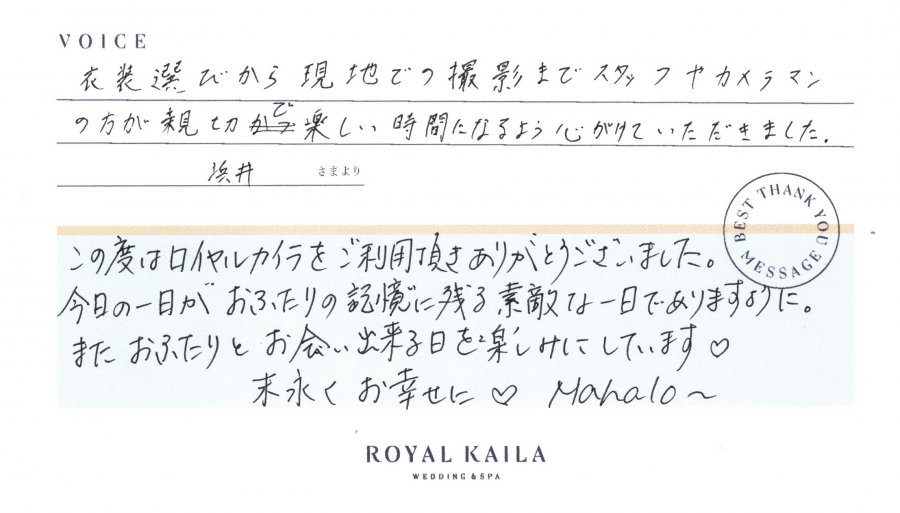 VOICE
衣装選びから現地での撮影までスタッフやカメラマン
の方が親切で楽しい時間になるよう心がけていただきました。
浜井 さまより
BEST THANK YOU MESSAGE
この度はロイヤルカイラをご利用頂きありがとうございました。
今日の一日がおふたりの記憶に残る素敵な一日でありますように。
またおふたりとお会い出来る日を楽しみにしています♡
末永くお幸せに♡ Mahalo〜
ROYAL KAILA
WEDDING & SPA